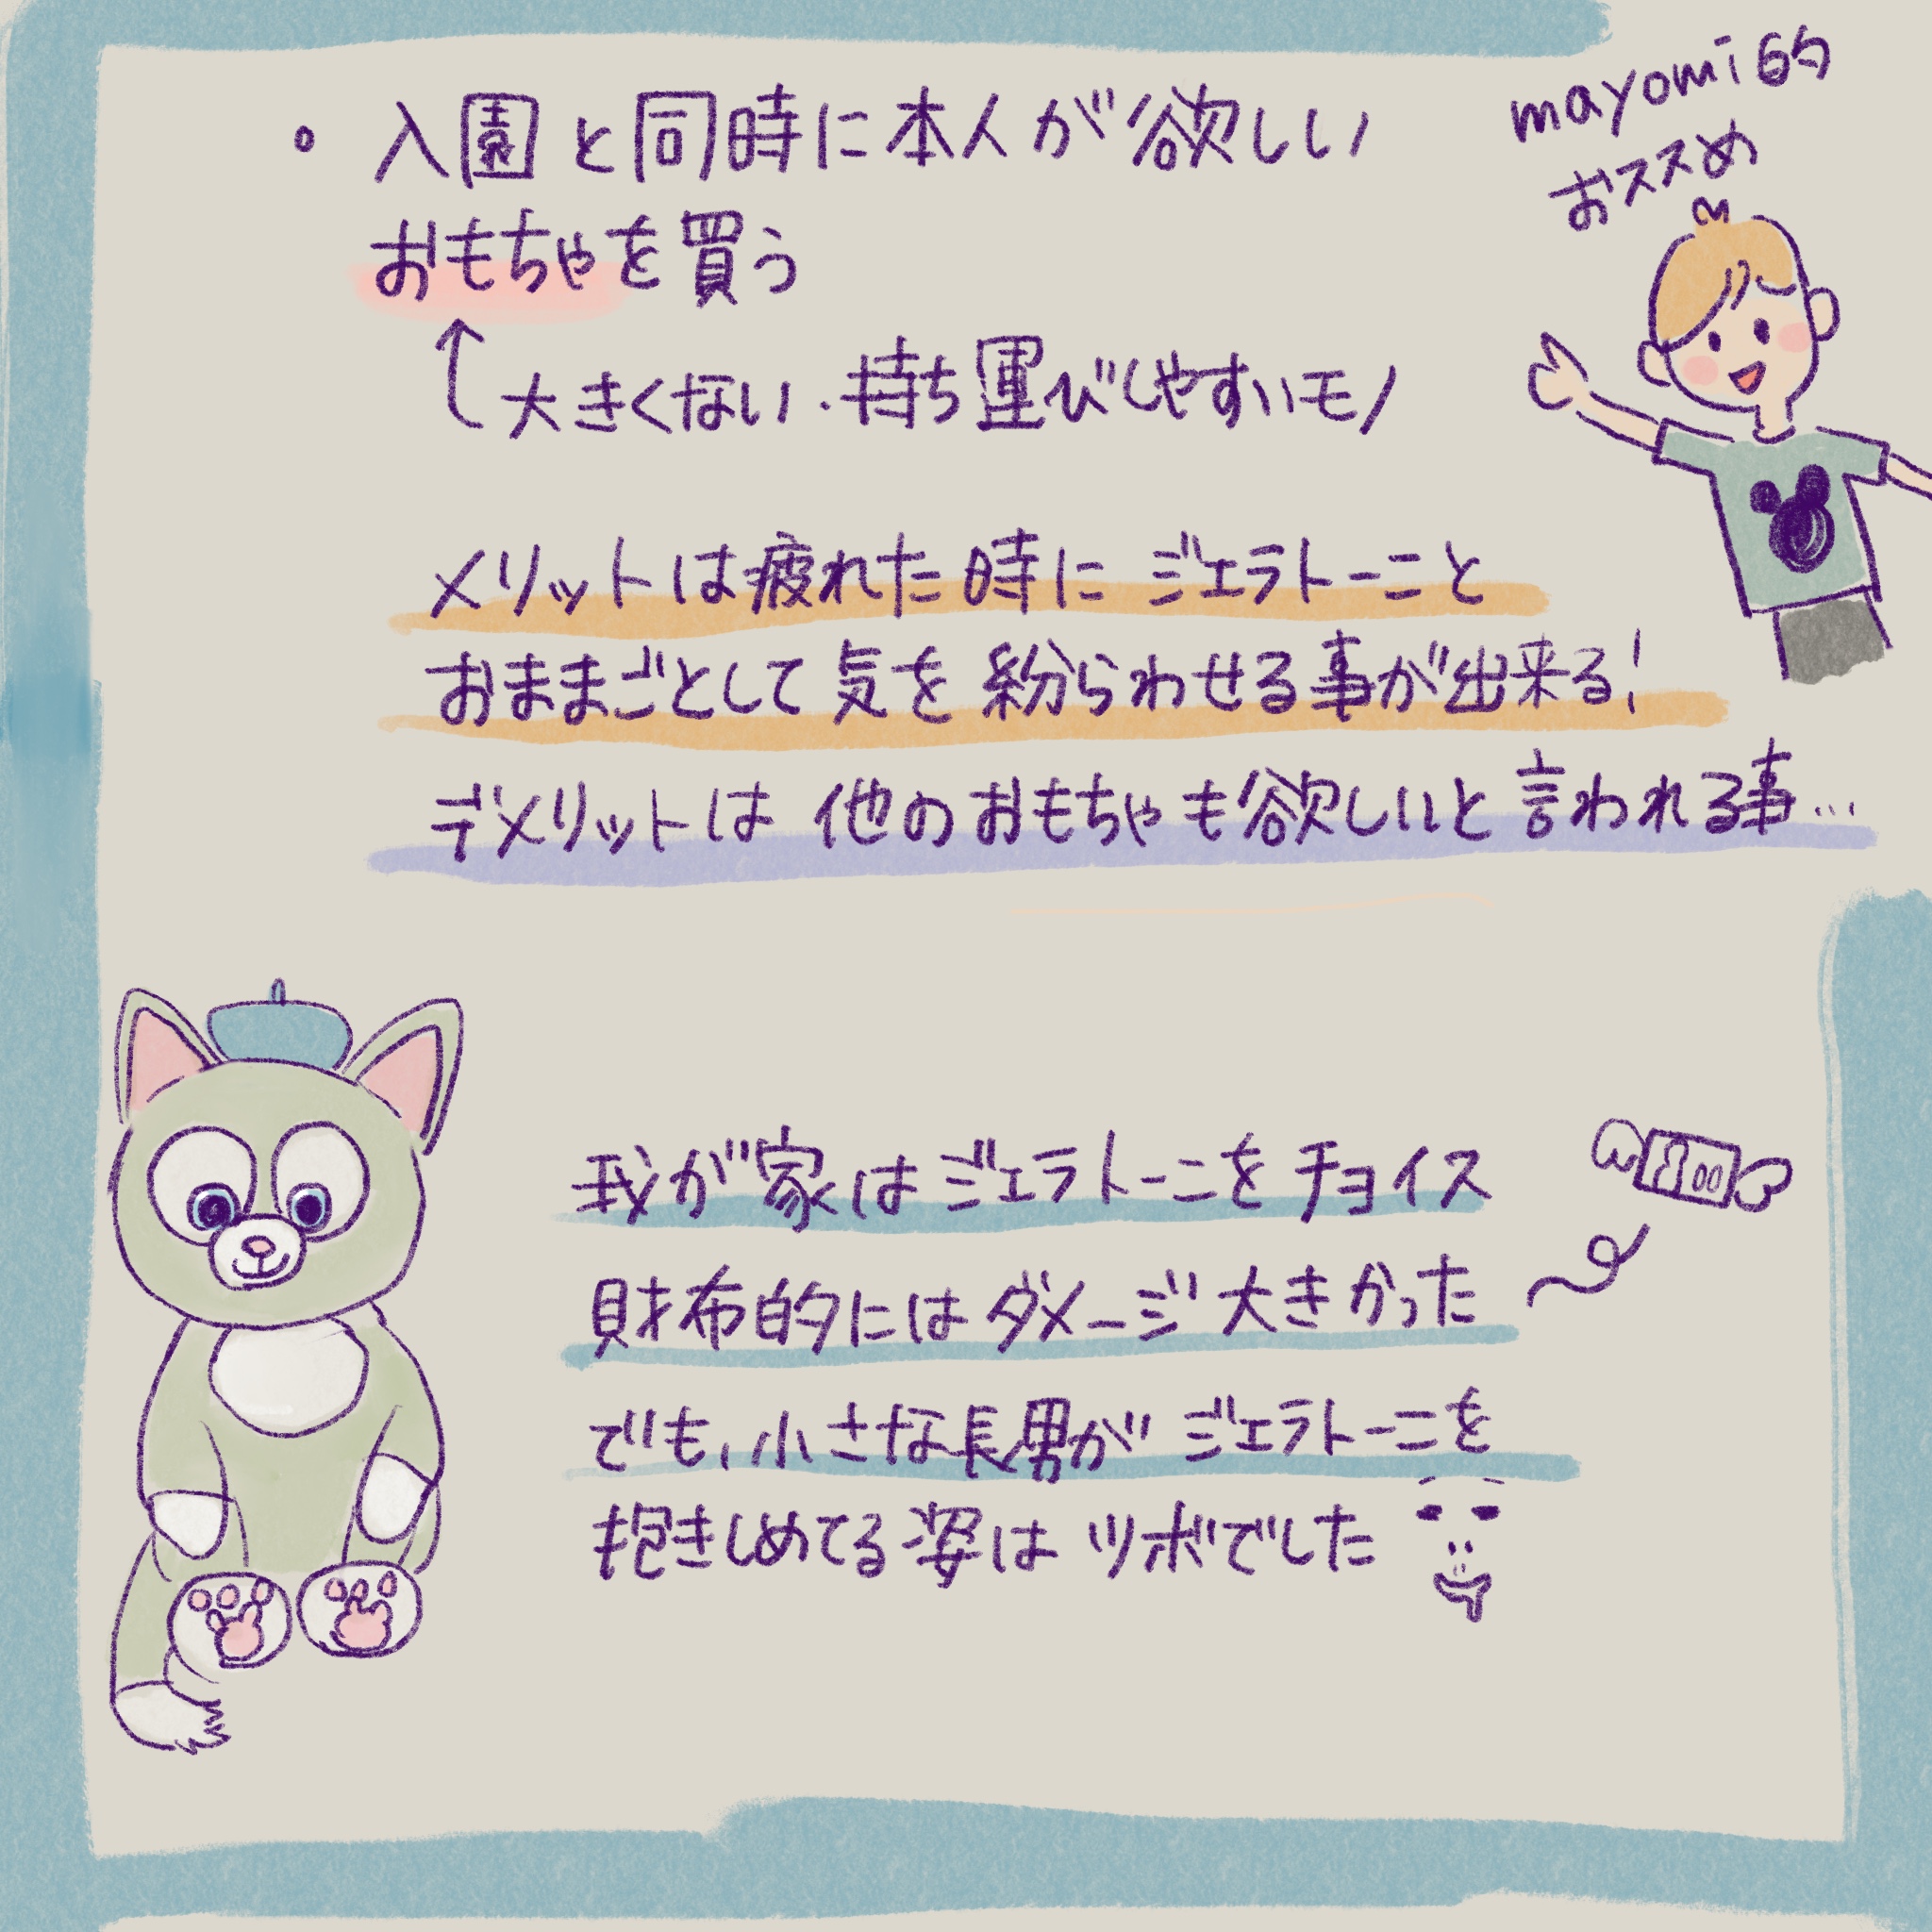 mayomi的
おススめ
• 入園と同時に本人が欲しい
おもちゃを買う
大きくない・持ち運びしやすいモノ
メリットは疲れた時にジェラトーニと
おままごとして気を紛らわせる事が出来る!
デメリットは他のおもちゃも欲しいと言われる事…
我が家はジェラトーニをチョイス
財布的にはダメージ大きかった
でも、小さな長男がジェラトーニを
抱きしめてる姿はツボでした